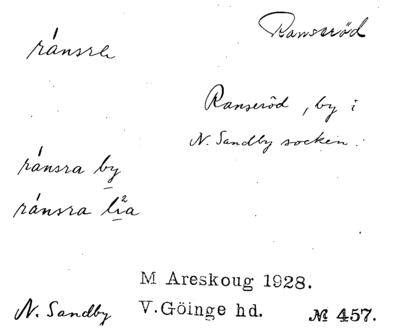 Ranseröd
ránsre
Ranseröd, by i
N. Sandby socken.
ránsra by
ránsra li²a
M Areskoug 1928.
N. Sandby V.Göinge hd. № 457.